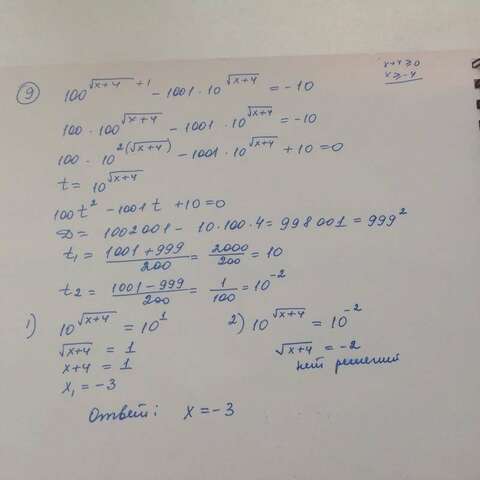 x+4 ≥ 0
x ≥ -4
⑨ 100^(√(x+4) +1) - 1001 · 10^√(x+4) = -10
100 · 100^√(x+4) - 1001 · 10^√(x+4) = -10
100 · 10^(2(√(x+4))) - 1001 · 10^√(x+4) + 10 = 0
t = 10^√(x+4)
100t² - 1001t + 10 = 0
D = 1002001 - 10·100·4 = 998001 = 999²
t₁ = (1001+999)/200 = 2000/200 = 10
t₂ = (1001-999)/200 = 1/100 = 10⁻²
1) 10^√(x+4) = 10¹
√(x+4) = 1
x+4 = 1
x₁ = -3
2) 10^√(x+4) = 10⁻²
√(x+4) = -2
нет решений
Ответ: x = -3